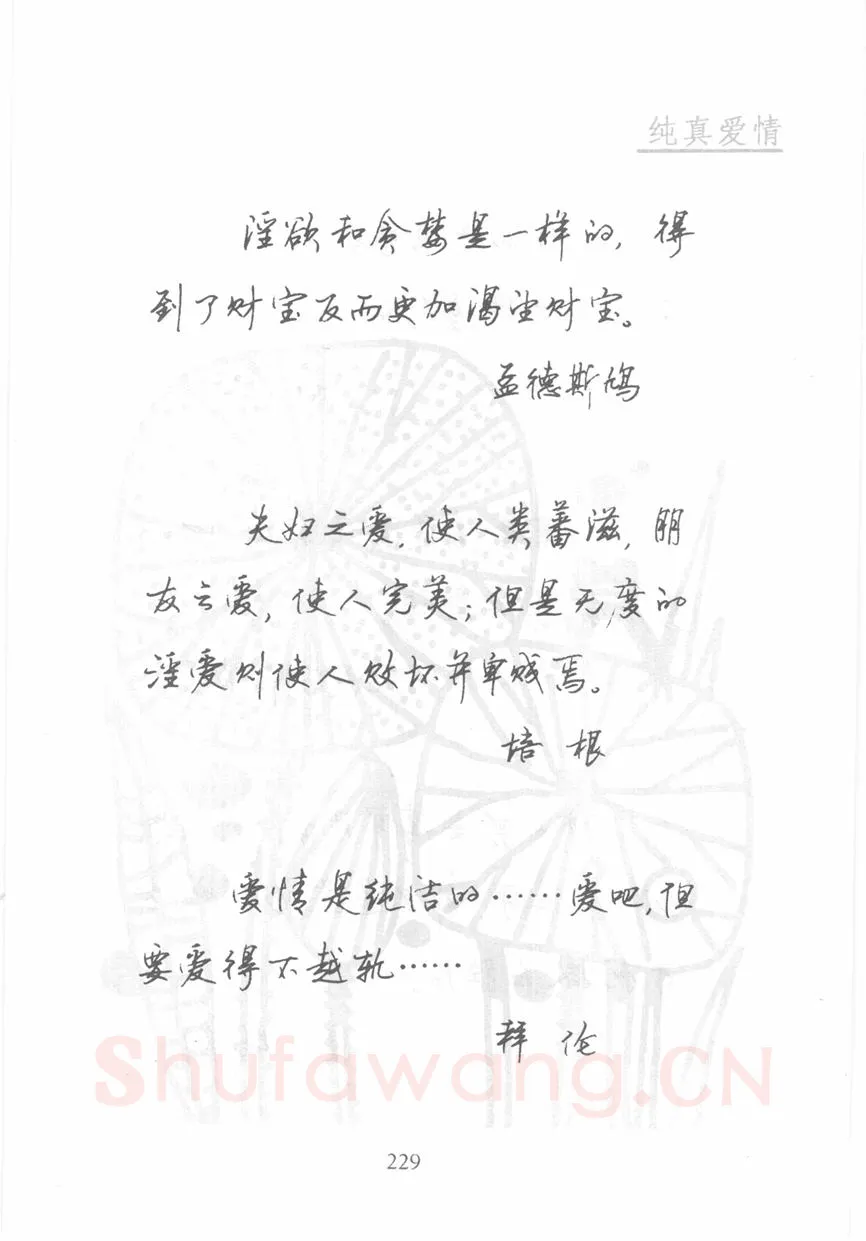 纯真爱情
淫欲和贪婪是一样的，得
到了财宝反而更加渴望财宝。
孟德斯鸠
夫妇之爱，使人类蕃滋，朋
友之爱，使人完美；但是无度的
淫爱则使人败坏并卑贱焉。
培根
爱情是纯洁的……爱吧，但
要爱得不越轨……
拜伦
Shufawang.CN
229